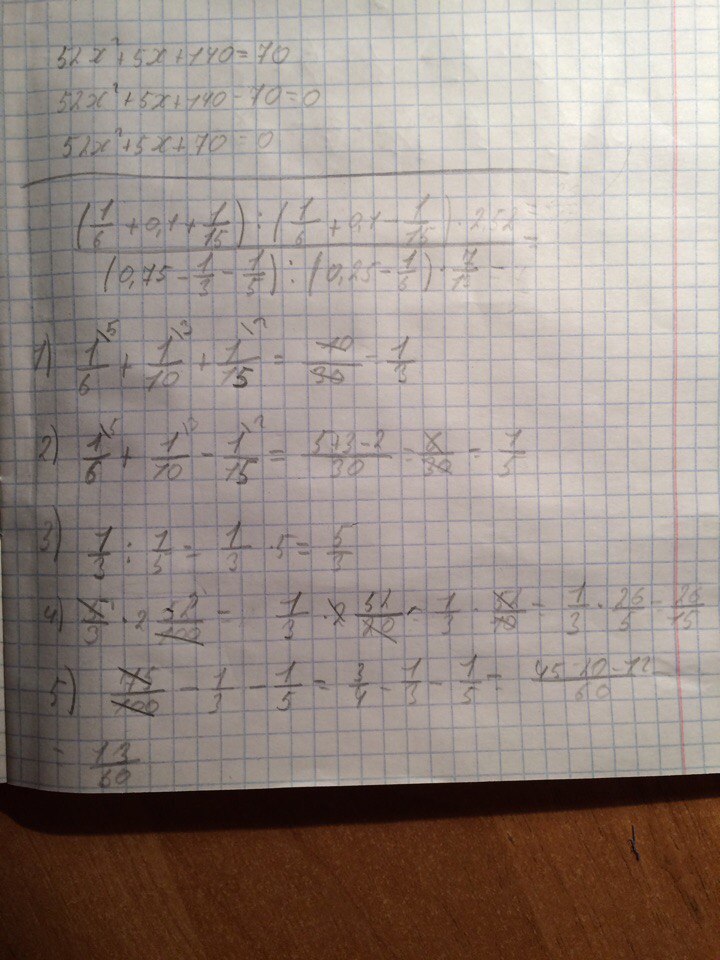 52x²+5x+140=70
52x²+5x+140-70=0
52x²+5x+70=0
(1/6 + 0,1 + 1/15) : (1/6 + 0,1 - 1/15) · 2,52 =
(0,75 - 1/3 - 1/5) : (0,25 - 1/6) · 7/15
1) 1\5/6 + 1\3/10 + 1\2/15 = 10/30 = 1/3
2) 1\5/6 + 1\3/10 - 1\2/15 = 5+3-2/30 = 6/30 = 1/5
3) 1/3 : 1/5 = 1/3 · 5 = 5/3
4) 5/3 · 2 52/100 = 1/3 · 2 52/20 = 1/3 · 52/10 = 1/3 · 26/5 = 26/15
5) 75/100 - 1/3 - 1/5 = 3/4 - 1/3 - 1/5 = 45-20-12/60
= 13/60